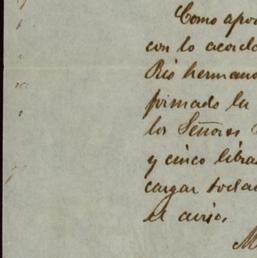 Como apo
con lo acorda
Rio hermano
firmado la
los Señores
y cinco libra
cargar
el aviso.
M